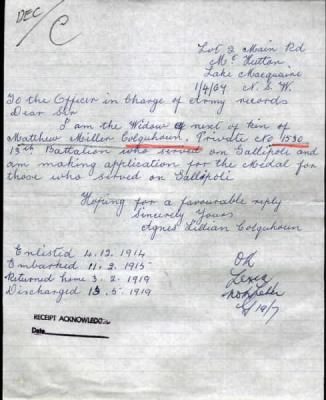 DEC
/C
Lot 2 Main Rd
Mc Hutton
Lake Macquarie
1/4/67 N. S. W.
To the Officer in Charge of Army records
Dear Sir
I am the Widow & next of kin of
Matthew Miller Colquhoun, Private No 1530
13th Battalion who served on Gallipoli and
am making application for the Medal for
those who served on Gallipoli
Hoping for a favourable reply
Sincerely Yours
Agnes Lillian Colquhoun
Enlisted 4.12.1914
Embarked 11.2.1915
Returned home 3.2.1919
Discharged 13.5.1919
OK
RECEIPT ACKNOWLEDGED
Date